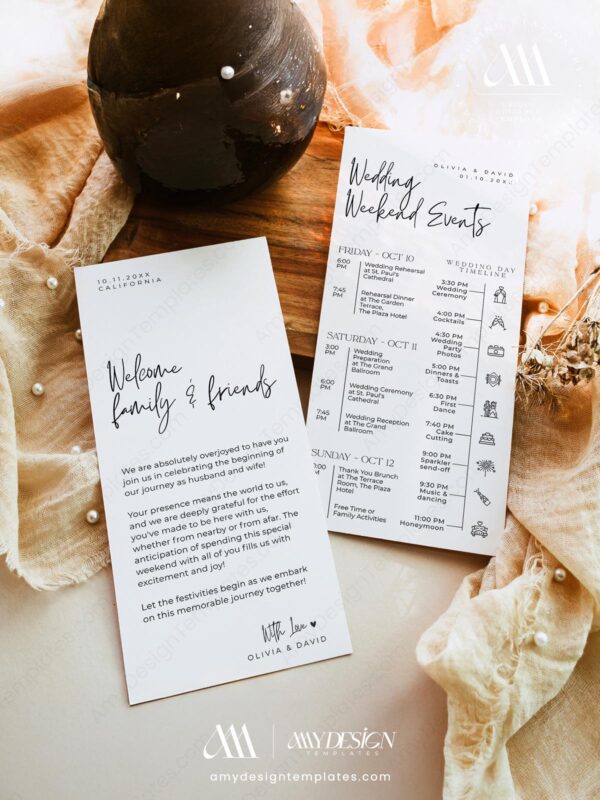 10.11.20XX
CALIFORNIA
Welcome
family & friends
We are absolutely overjoyed to have you
join us in celebrating the beginning of
our journey as husband and wife!
Your presence means the world to us,
and we are deeply grateful for the effort
you've made to be here with us,
whether from nearby or from afar. The
anticipation of spending this special
weekend with all of you fills us with
excitement and joy!
Let the festivities begin as we embark
on this memorable journey together!
With Love
OLIVIA & DAVID
OLIVIA & DAVID
01.10.20XX
Wedding
Weekend Events
FRIDAY - OCT 10
6:00
PM
Wedding Rehearsal
at St. Paul's
Cathedral
7:45
PM
Rehearsal Dinner
at The Garden
Terrace,
The Plaza Hotel
SATURDAY - OCT 11
3:00
PM
Wedding
Preparation
at The Grand
Ballroom
6:00
PM
Wedding Ceremony
at St. Paul's
Cathedral
7:45
PM
Wedding Reception
at The Grand
Ballroom
SUNDAY - OCT 12
PM
Thank You Brunch
at The Terrace
Room, The Plaza
Hotel
Free Time or
Family Activities
WEDDING DAY
TIMELINE
3:30 PM
Wedding
Ceremony
4:00 PM
Cocktails
4:30 PM
Wedding
Party
Photos
5:00 PM
Dinners &
Toasts
6:30 PM
First
Dance
7:40 PM
Cake
Cutting
9:00 PM
Sparkler
send-off
9:30 PM
Music &
dancing
11:00 PM
Honeymoon
AMY DESIGN
TEMPLATES
amydesigntemplates.com